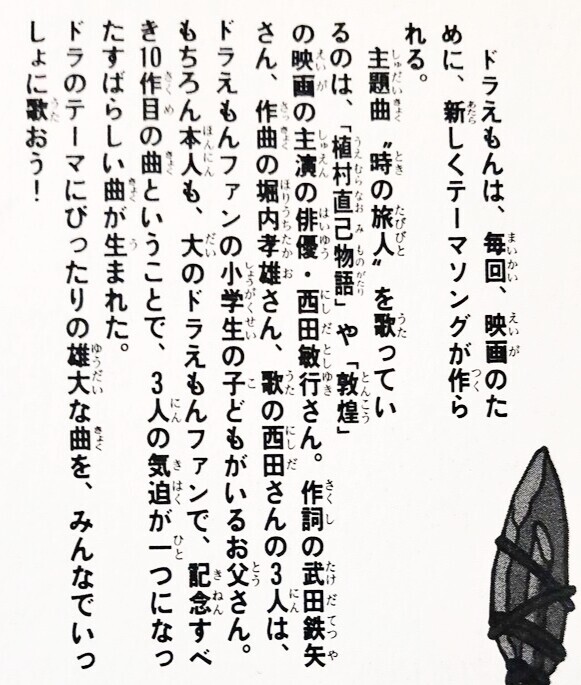 ドラえもんは、毎回、映画のた
めに、新しくテーマソングが作ら
れる。
主題曲〝時の旅人〟を歌ってい
るのは、「植村直己物語」や「敦煌」
の映画の主演の俳優・西田敏行さん。作詞の武田鉄矢
さん、作曲の堀内孝雄さん、歌の西田さんの3人は、
ドラえもんファンの小学生の子どもがいるお父さん。
もちろん本人も、大のドラえもんファンで、記念すべ
き10作目の曲ということで、3人の気迫が一つになっ
たすばらしい曲が生まれた。
ドラのテーマにぴったりの雄大な曲を、みんなでいっ
しょに歌おう！